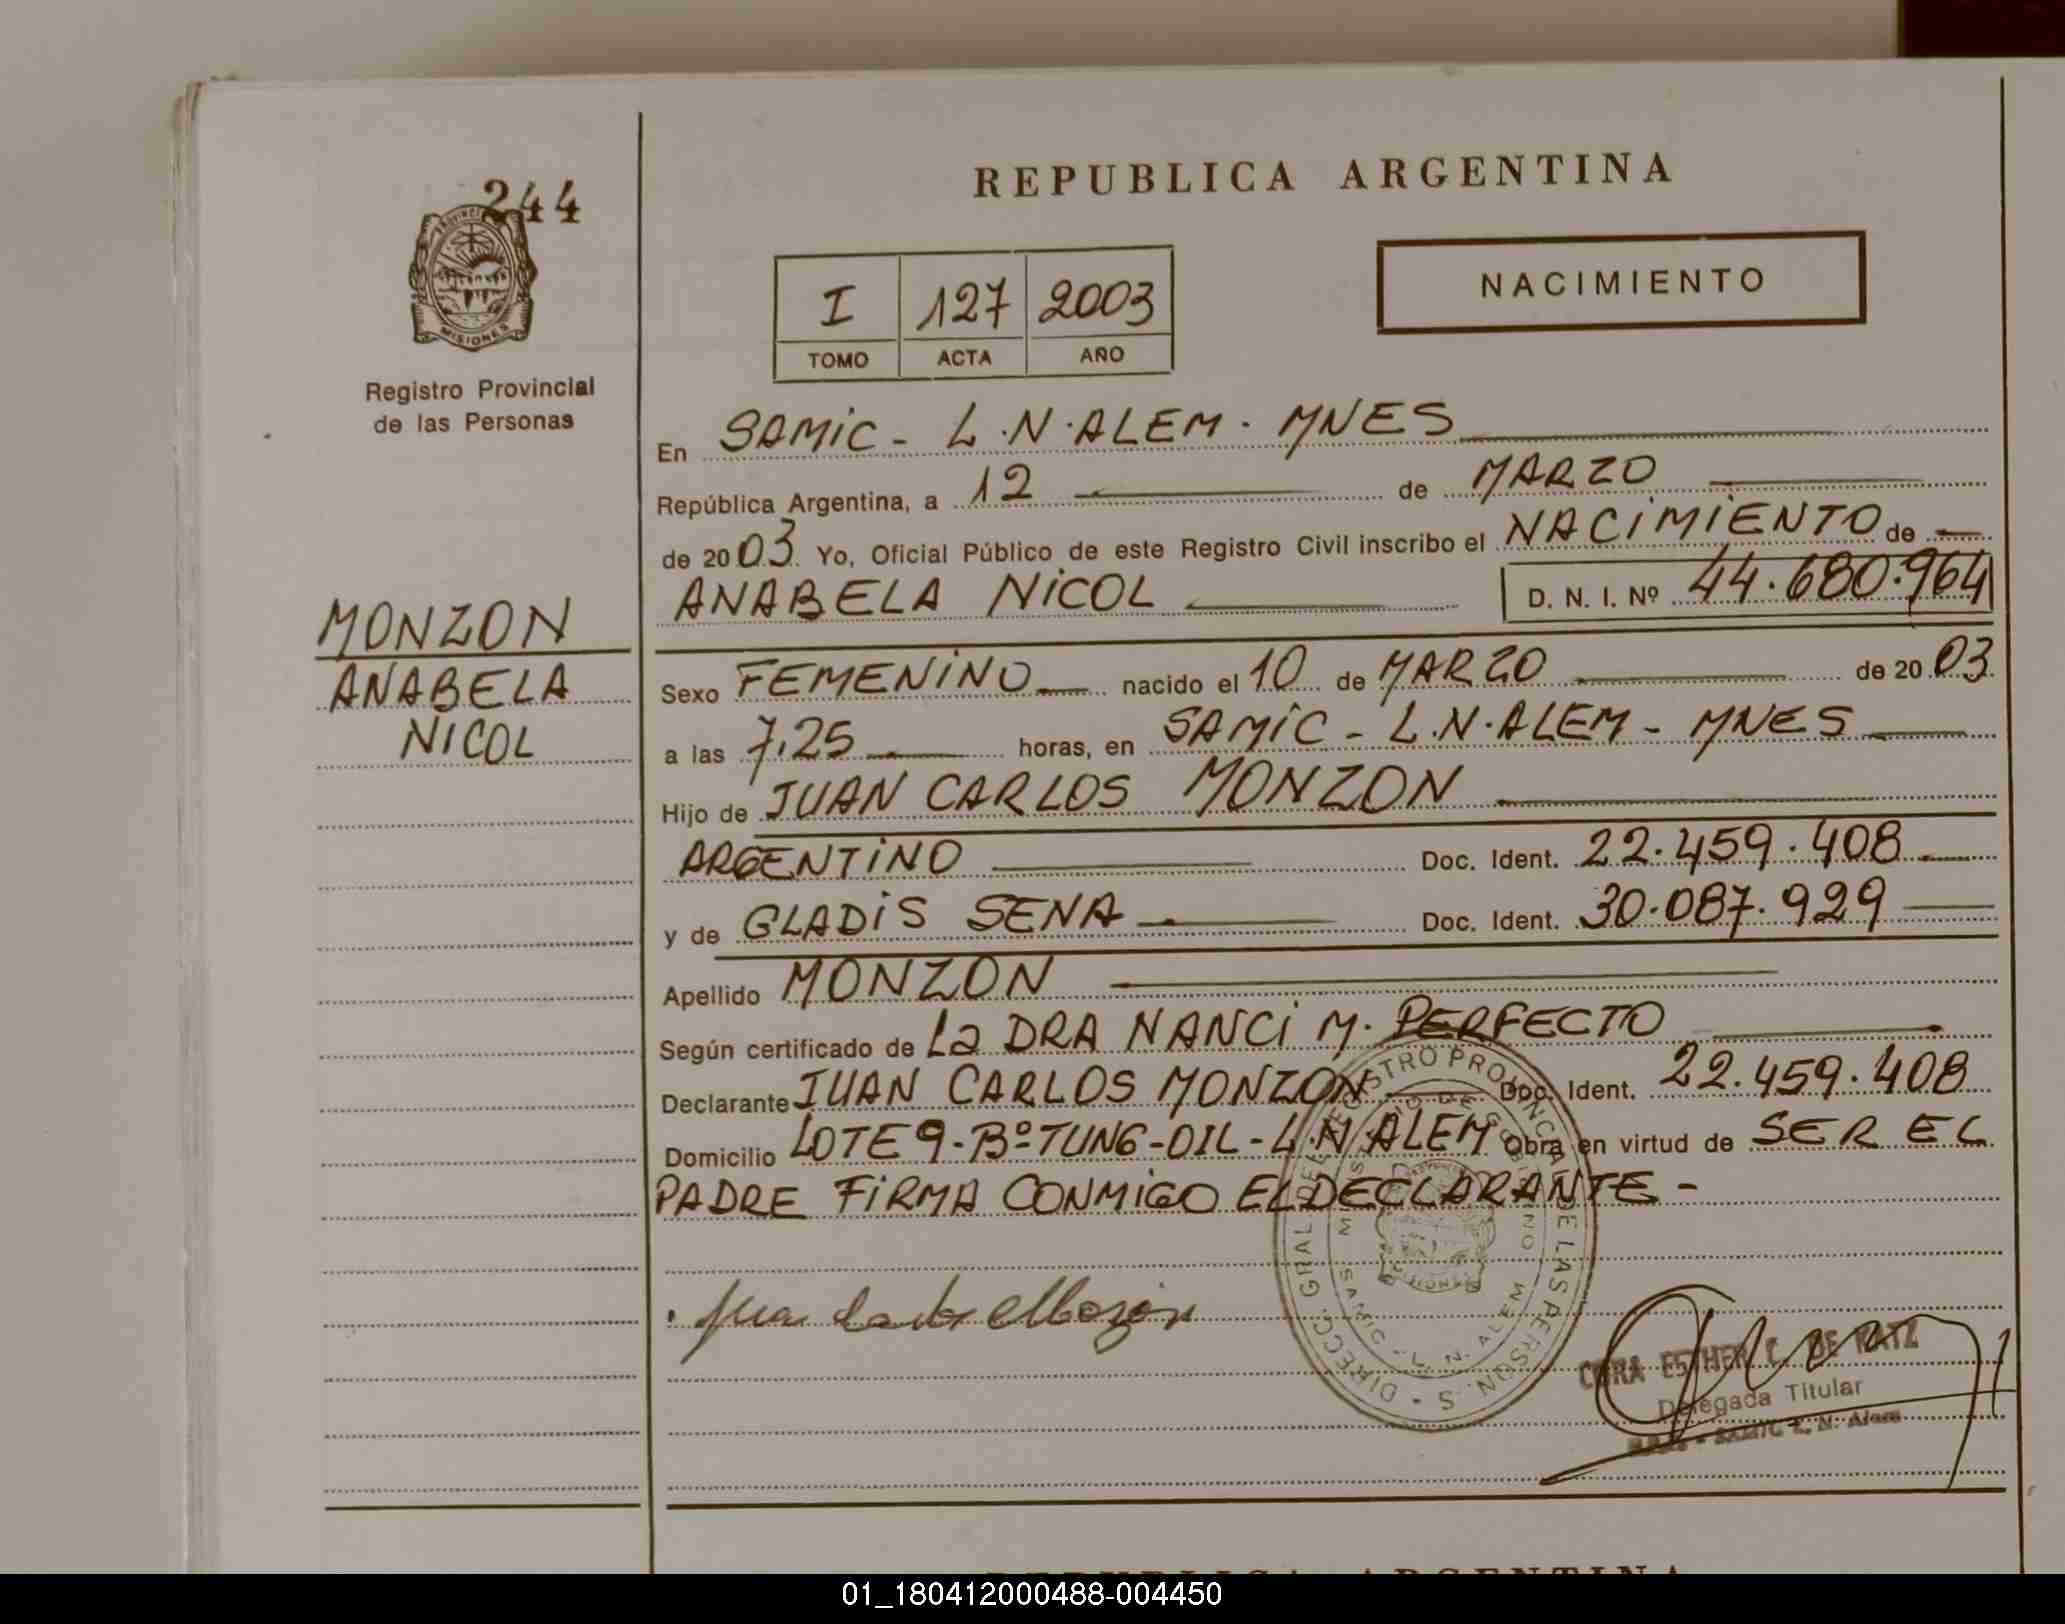 REPUBLICA ARGENTINA
244
PROVINCIA
MISIONES
Registro Provincial
de las Personas
I 127 2003
TOMO ACTA AÑO
NACIMIENTO
En SAMIC - L.N.ALEM - MNES
República Argentina, a 12 de MARZO
de 2003. Yo, Oficial Público de este Registro Civil inscribo el NACIMIENTO de
ANABELA NICOL D. N. I. Nº 44.680.964
MONZON
ANABELA
NICOL
Sexo FEMENINO nacido el 10 de MARZO de 2003.
a las 7,25 horas, en SAMIC - L.N.ALEM - MNES
Hijo de JUAN CARLOS MONZON
ARGENTINO Doc. Ident. 22.459.408
y de GLADIS SENA Doc. Ident. 30.087.929
Apellido MONZON
Según certificado de La DRA NANCI M. PERFECTO
Declarante JUAN CARLOS MONZON Doc. Ident. 22.459.408
Domicilio LOTE 9-Bº TUNG-OIL-L.N.ALEM Obra en virtud de SER EL
PADRE FIRMA CONMIGO EL DECLARANTE -
Juan Carlos Monzon
DIRECC. GRAL DEL REGISTRO PROVINCIAL DE LAS PERSONAS
SAMIC - L. N. ALEM
MISIONES
CORA ESTHER C. DE RATZ
Delegada Titular
SAMIC L. N. Alem
REPUBLICA ARGENTINA
01_180412000488-004450